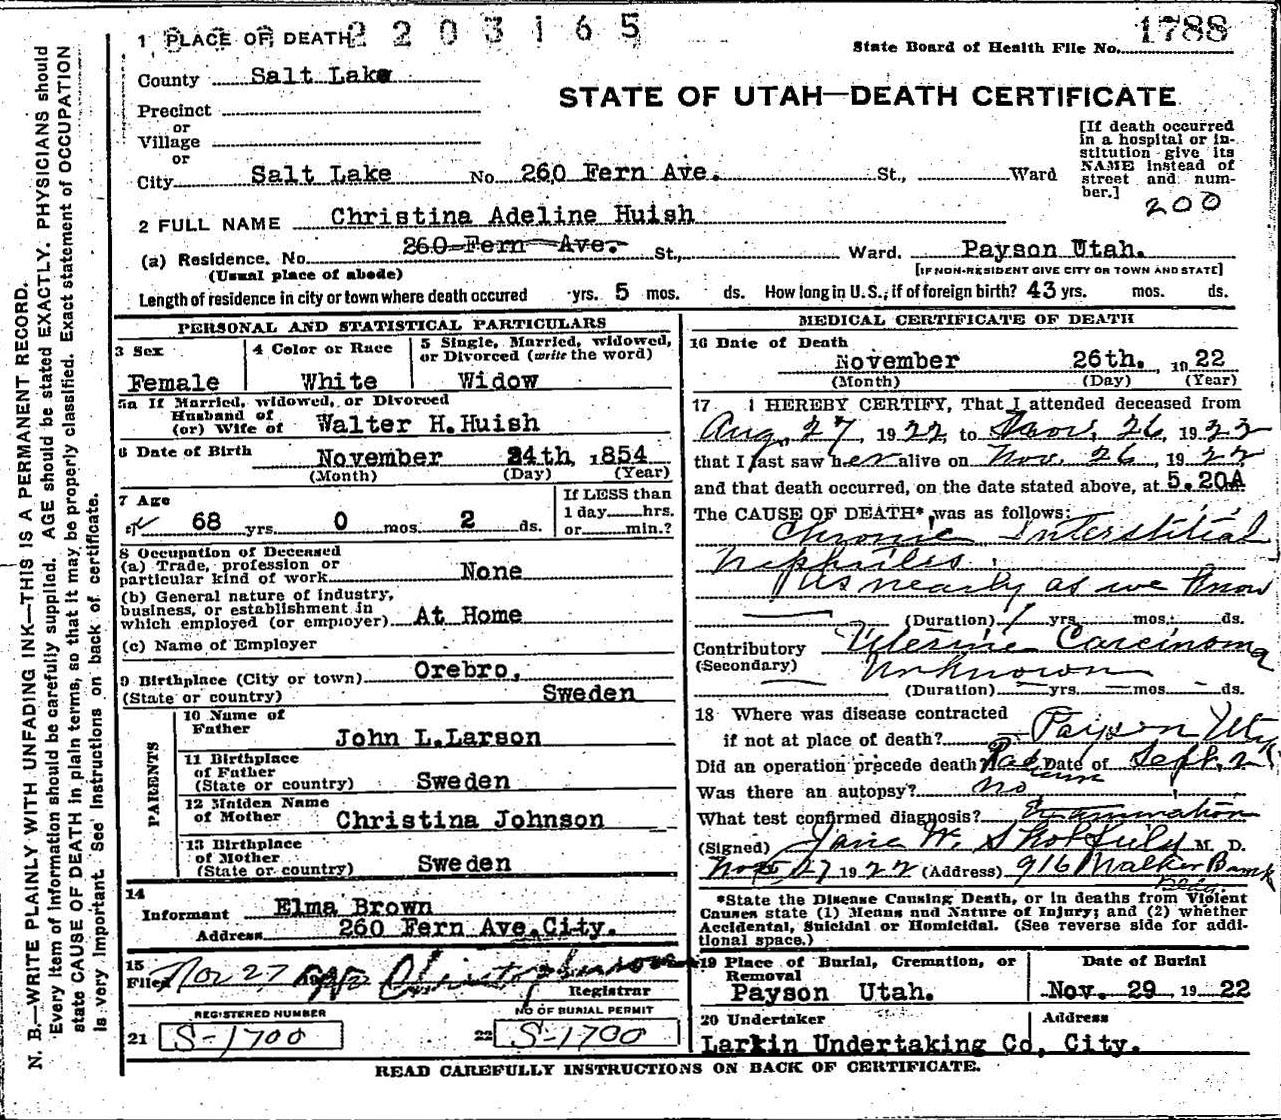 2203165
1788
1 PLACE OF DEATH
State Board of Health File No.
County Salt Lake
STATE OF UTAH—DEATH CERTIFICATE
Precinct
or
Village
or
City Salt Lake No. 260 Fern Ave. St., Ward
[If death occurred
in a hospital or in-
stitution give its
NAME instead of
street and num-
ber.]
200
2 FULL NAME Christina Adeline Huish
(a) Residence. No. 260 Fern Ave. St., Ward. Payson Utah.
(Usual place of abode)
[IF NON-RESIDENT GIVE CITY OR TOWN AND STATE]
Length of residence in city or town where death occured yrs. 5 mos. ds. How long in U.S., if of foreign birth? 43 yrs. mos. ds.
PERSONAL AND STATISTICAL PARTICULARS
3 Sex
Female
4 Color or Race
White
5 Single, Married, widowed,
or Divorced (write the word)
Widow
5a If Married, widowed, or Divorced
Husband of
(or) Wife of Walter H.Huish
6 Date of Birth November 24th, 1854
(Month) (Day) (Year)
7 Age
68 yrs. 0 mos. 2 ds.
If LESS than
1 day hrs.
or min.?
8 Occupation of Deceased
(a) Trade, profession or
particular kind of work None
(b) General nature of industry,
business, or establishment in
which employed (or employer) At Home
(c) Name of Employer
9 Birthplace (City or town) Orebro,
(State or country) Sweden
PARENTS
10 Name of
Father John L.Larson
11 Birthplace
of Father
(State or country) Sweden
12 Maiden Name
of Mother Christina Johnson
13 Birthplace
of Mother
(State or country) Sweden
14
Informant Elma Brown
Address 260 Fern Ave.City.
15
Filed Nov 27
Registrar
REGISTERED NUMBER
21 S-1700
NO OF BURIAL PERMIT
22 S-1700
MEDICAL CERTIFICATE OF DEATH
16 Date of Death
November 26th. 1922
(Month) (Day) (Year)
17 I HEREBY CERTIFY, That I attended deceased from
Aug. 27 1922 to Nov. 26, 1922
that I last saw her alive on Nov. 26, 1922
and that death occurred, on the date stated above, at 5.20A
The CAUSE OF DEATH*, was as follows:
Chronic Interstitial
Nephritis.
As nearly as we know
(Duration) 1 yrs. mos. ds.
Contributory Uterine Carcinoma
(Secondary) Unknown
(Duration) yrs. mos ds.
18 Where was disease contracted
if not at place of death? Payson Utah
Did an operation precede death? Radium Date of Sept.
Was there an autopsy? no
What test confirmed diagnosis? Examination
(Signed) Jane W. Skolfield M. D.
Nov. 27 1922 (Address) 916 Walker Bank
Bldg.
*State the Disease Causing Death, or in deaths from Violent
Causes state (1) Means and Nature of Injury; and (2) whether
Accidental, Suicidal or Homicidal. (See reverse side for addi-
tional space.)
19 Place of Burial, Cremation, or
Removal
Payson Utah.
Date of Burial
Nov. 29 1922
20 Undertaker
Address
Larkin Undertaking Co, City.
READ CAREFULLY INSTRUCTIONS ON BACK OF CERTIFICATE.
N. B.—WRITE PLAINLY WITH UNFADING INK—THIS IS A PERMANENT RECORD.
Every item of information should be carefully supplied. AGE should be stated EXACTLY. PHYSICIANS should
state CAUSE OF DEATH in plain terms, so that it may be properly classified. Exact statement of OCCUPATION
is very important. See instructions on back of certificate.